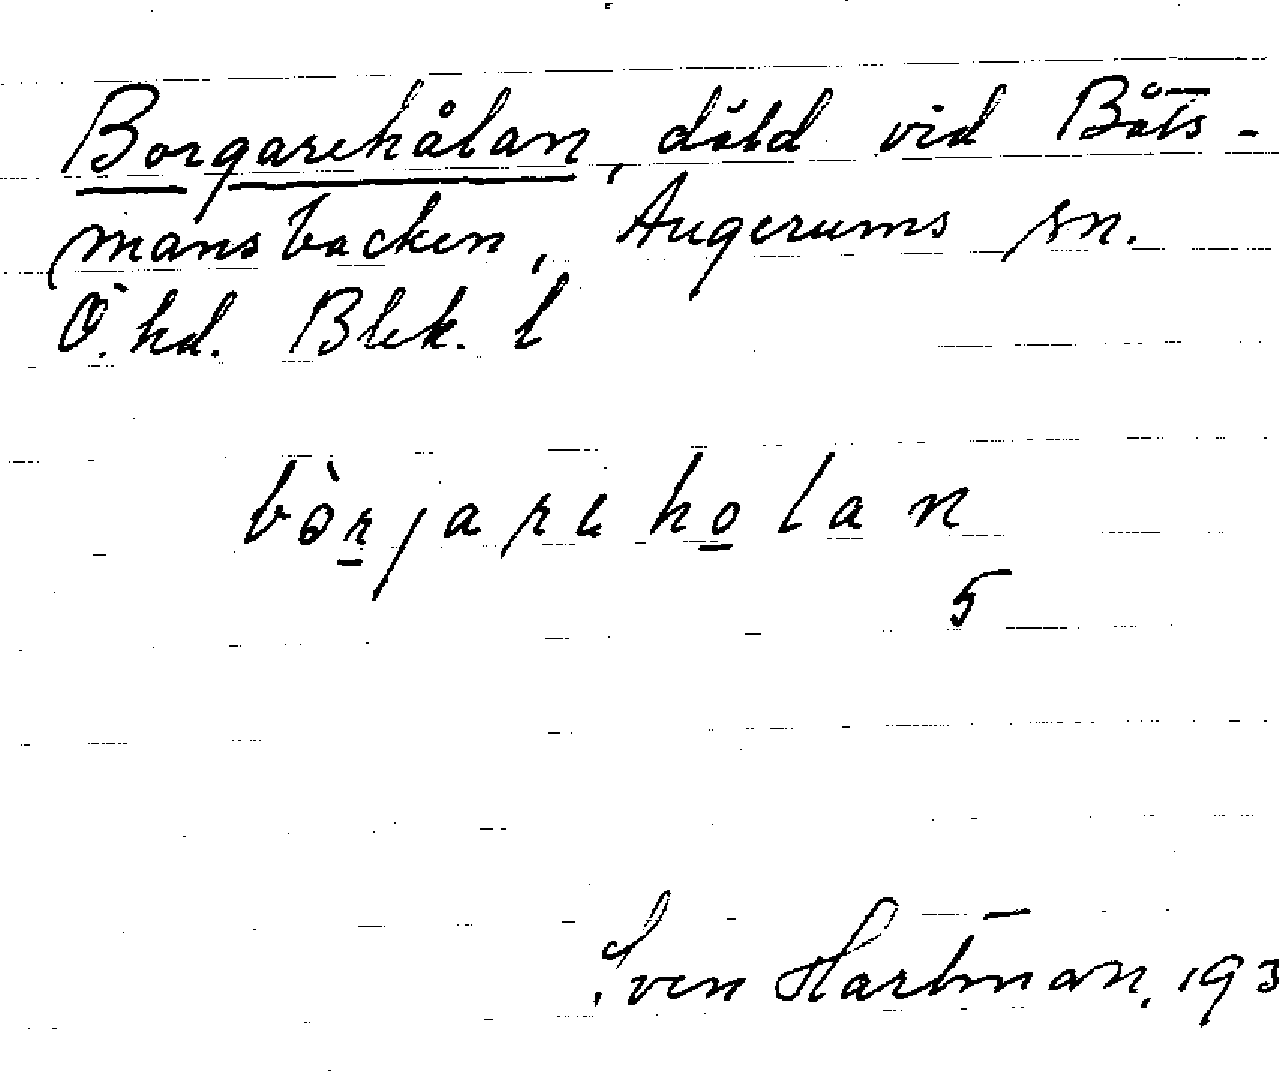 Borgarehålan, döld vid Båts-
mansbacken, Augerums sn.
Ö. hd. Blek. l
bòrjareholan
5
Sven Hartman, 193